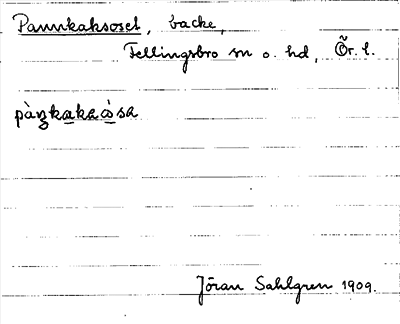 Pannkaksoset, backe,
Fellingsbro sn o. hd, Ör. l.
pàŋkakaàsa
Jöran Sahlgren 1909.